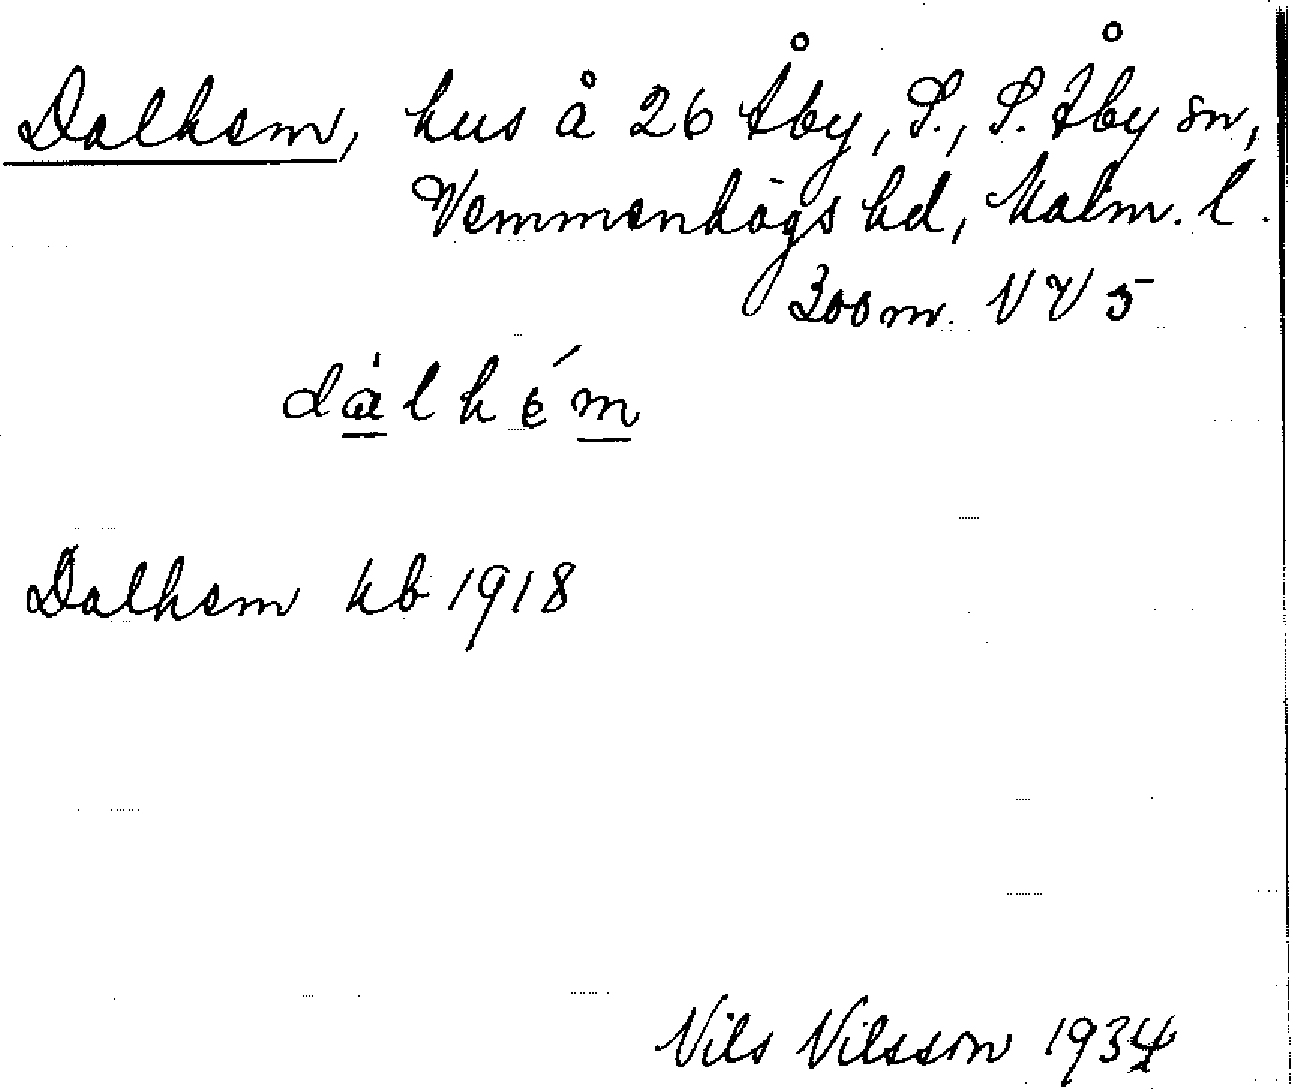 Dalhem, hus å 26 Åby, S., S. Åby sn,
Vemmenhögs hd, Malm. l.
300 m. VV 5
dàlhém
Dalhem kb 1918
Nils Nilsson 1934